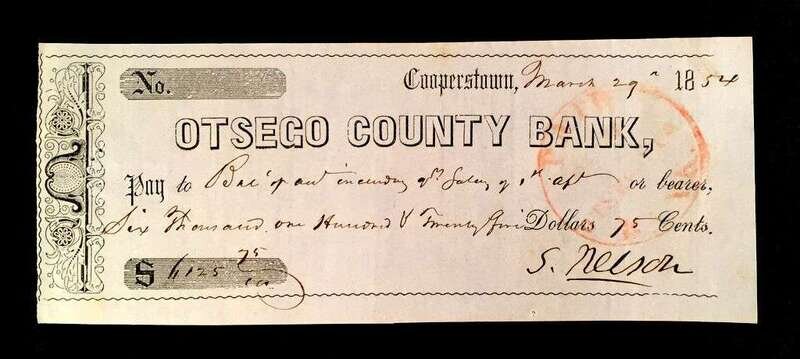 No.
Cooperstown, March 29" 1854
OTSEGO COUNTY BANK,
Pay to Bal' of act including qr Salary of 1st apl or bearer,
Six Thousand, one Hundred & Twenty five Dollars 75 Cents.
$ 6125 75/100
S. Nelson